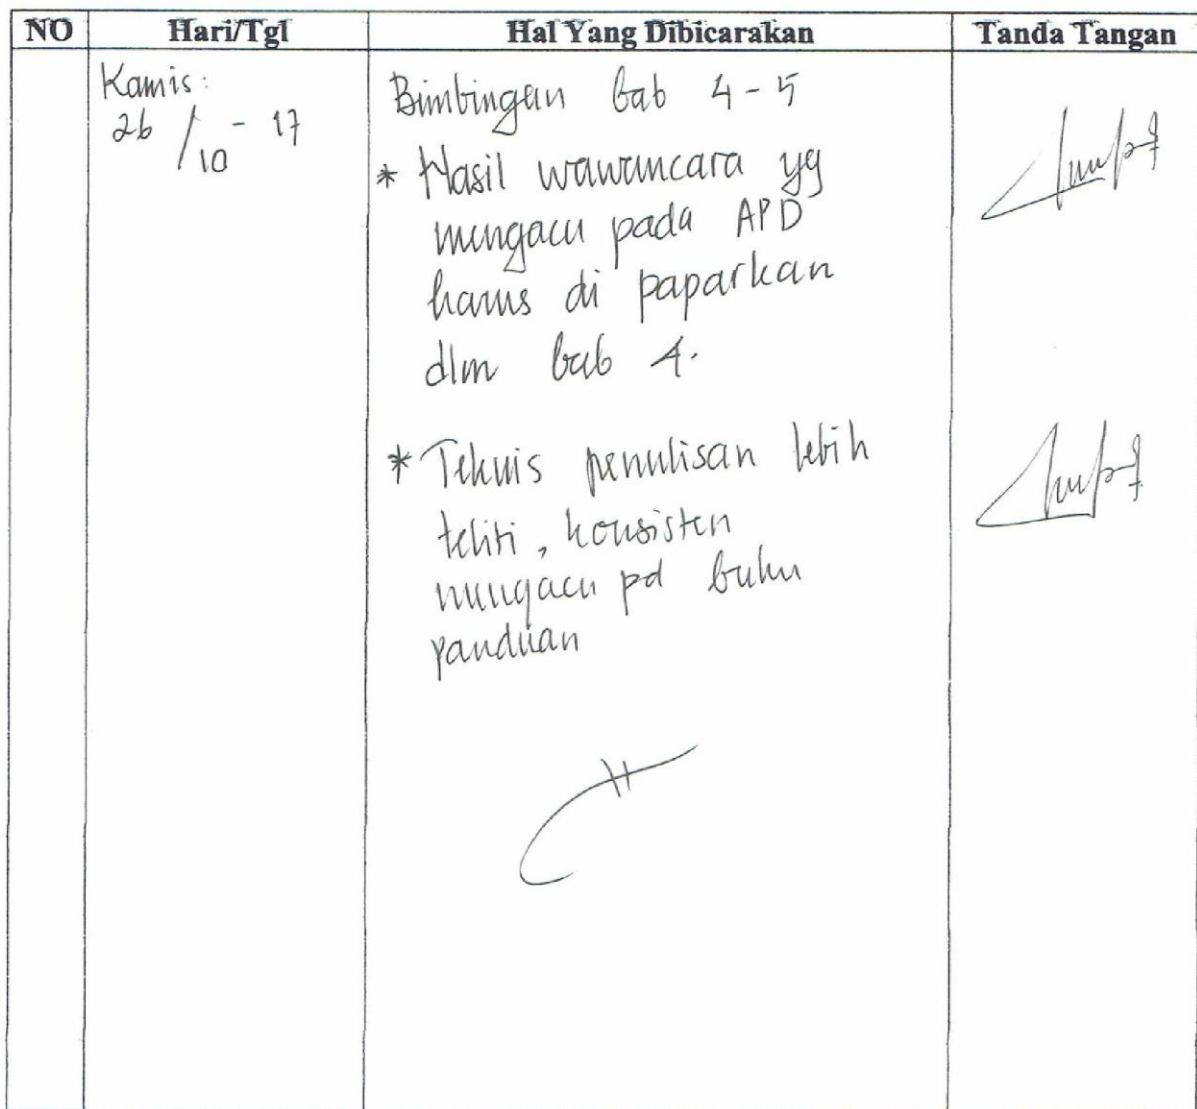 NO Hari/Tgl Hal Yang Dibicarakan Tanda Tangan
Kamis:
26/10-17
Bimbingan bab 4-5
* Hasil wawancara yg
mengacu pada APD
harus di paparkan
dlm bab 4.
* Teknis penulisan lebih
teliti, konsisten
mengacu pd buku
panduan